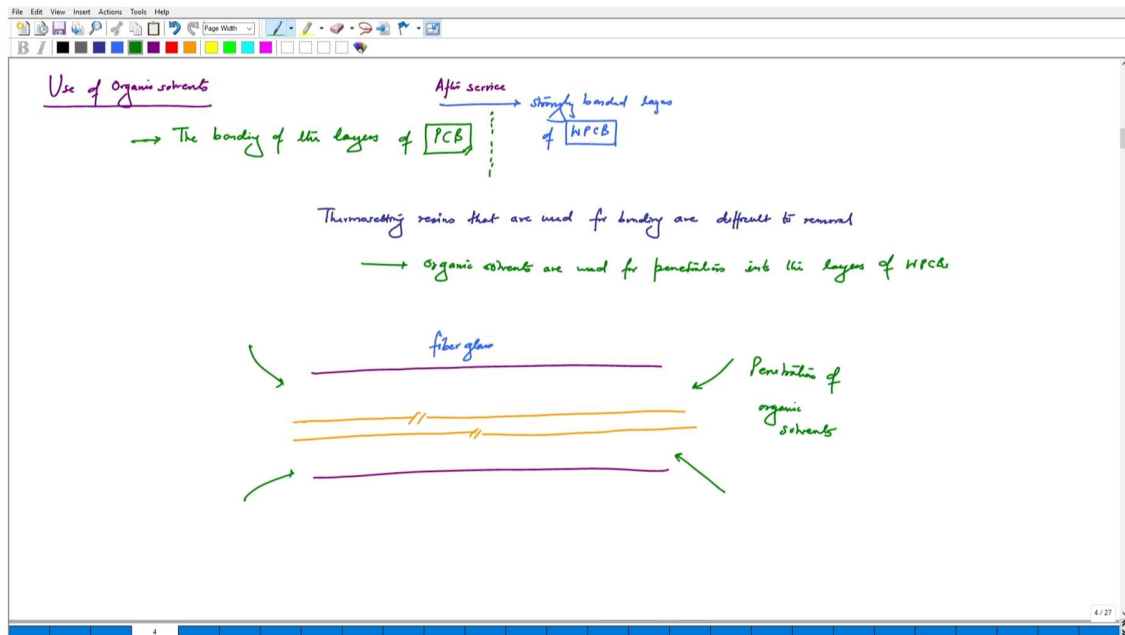 File Edit View Insert Actions Tools Help
Page Width
B I
Use of Organic solvents
After service
→ strongly bonded layers
→ The bonding of the layers of PCB
of WPCB
Thermosetting resins that are used for bonding are difficult to removal
→ organic solvents are used for penetration into the layers of WPCBs
fiber glass
Penetration of
organic
solvents
4 / 27
4